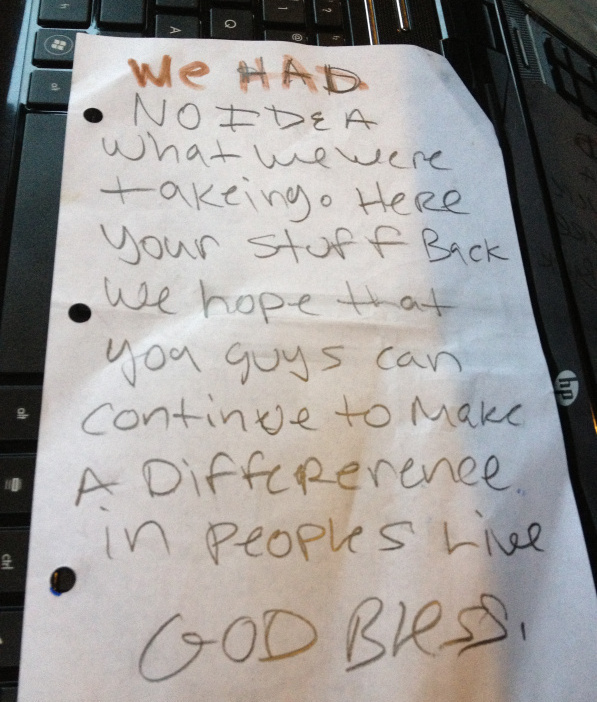 We HAD
NO IDEA
what we were
takeing. Here
your stuff Back
We hope that
you guys can
continue to Make
A Differerence.
in peoples Live
GOD Bless.
hp
Q
A
alt
ctrl